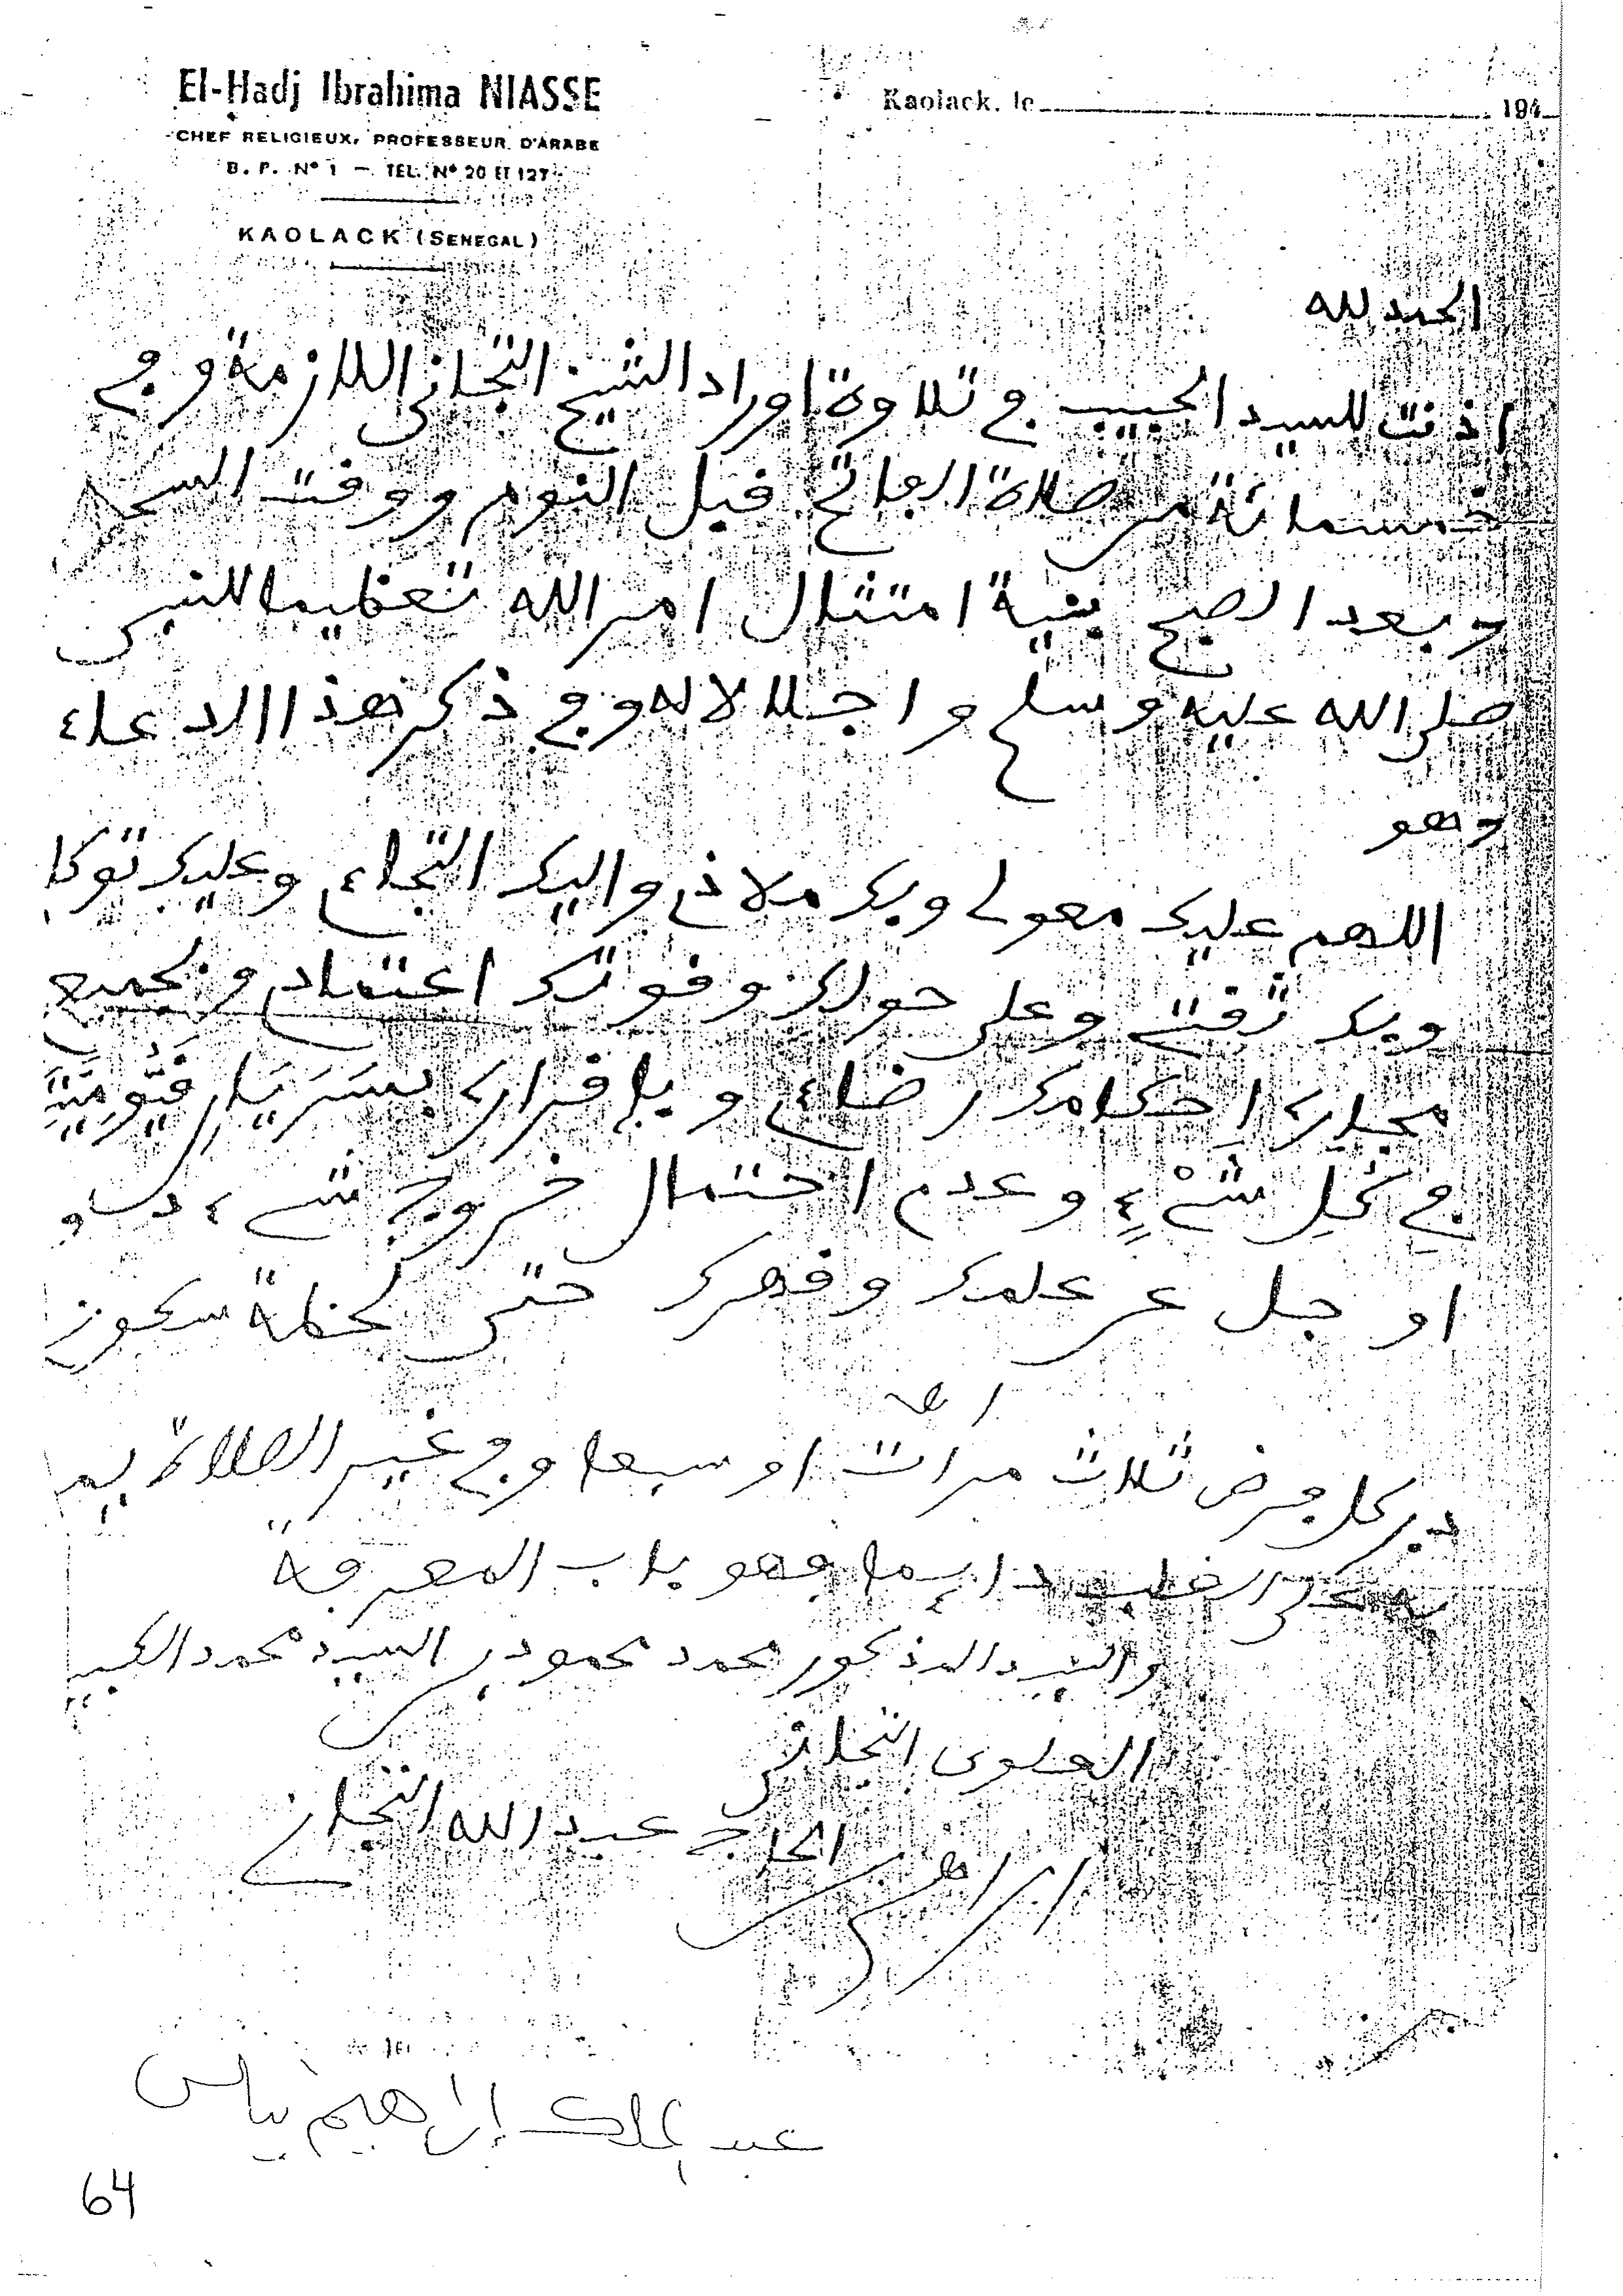 El-Hadj Ibrahima NIASSE
CHEF RELIGIEUX, PROFESSEUR D'ARABE
B. P. N° 1 — TEL. N° 20 ET 127
KAOLACK (SENEGAL)
Kaolack, le 194
الحمد لله
اذنت للسيد الحبيب في تلاوة اوراد الشيخ التجاني اللازمة وفي
خمسمائة من صلاة الفاتح قبل النوم ووقت السحر
وبعد الصبح بنية امتثال امر الله تعظيما للنبي
صلى الله عليه وسلم واجلالا له وفي ذكر هذا الدعاء
وهو
اللهم عليك معولي وبك ملاذي واليك التجاءي وعليك توكلي
وبك ثقتي وعلى حولك وقوتك اعتمادي وبجميع
مجاري احكامك رضاءي وبإقراري بسَرَيَان قَيُّومِيَّتِكَ
فِي كُلِ شَيْءٍ وعدم احتمال خروج شيء دق
او جل عن علمك وقهرك حتى لحظة سكوني
اهـ
دبر كل فرض ثلاث مرات او سبعا وفي غير الصلاة
القلب دايما فهو باب المعرفة
والسيد المذكور محمد محمود بن السيد محمد الكبير
العلوي التجاني
ابراهيم الحاج عبد الله التجاني
عبد الملك إبراهيم نياس
64